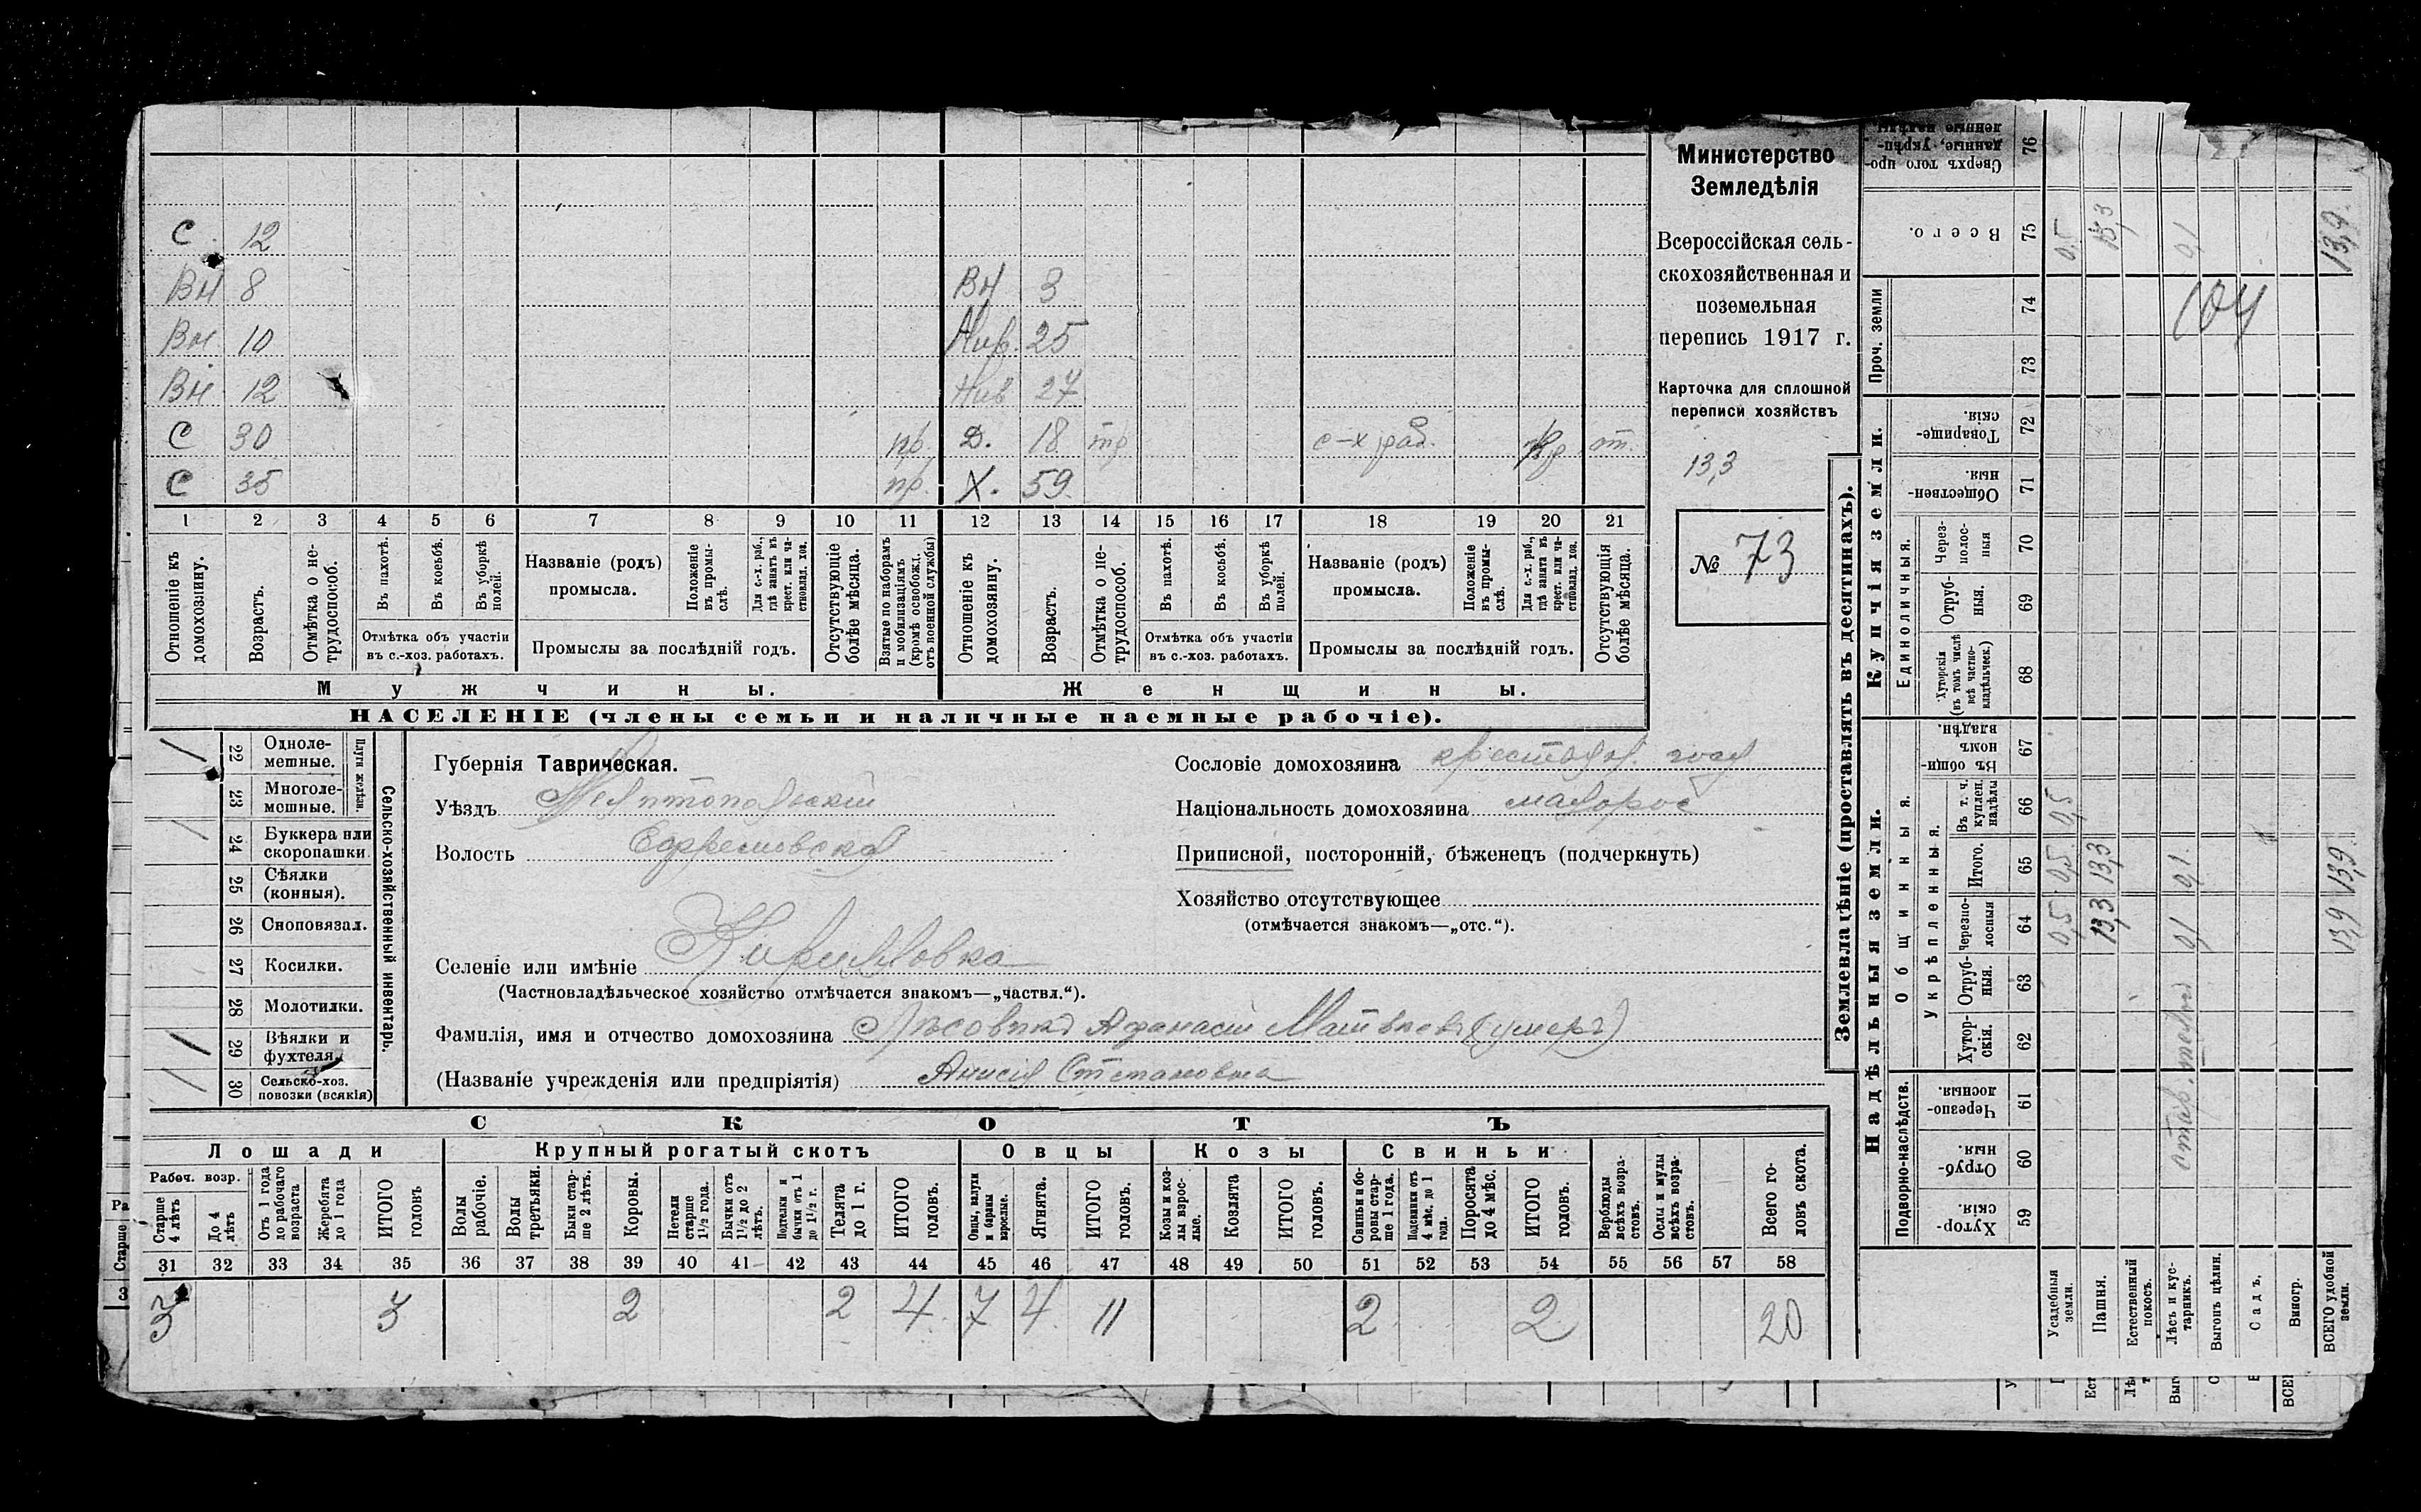 С 12
Вн 8 Вн 3
Вн 10 Нив. 25
Вн 12 Нив 27
С 30 пр. Д. 18 тр с-х раб. от.
С 35 пр. Х. 59
1 2 3 4 5 6 7 8 9 10 11 12 13 14 15 16 17 18 19 20 21
Отношеніе къ домохозяину.
Возрастъ.
Отмѣтка о нетрудоспособ.
Въ пахотѣ.
Въ косьбѣ.
Въ уборкѣ полей.
Отмѣтка объ участіи
въ с.-хоз. работахъ.
Названіе (родъ)
промысла.
Положеніе въ промыслѣ.
Для с.-х. раб., гдѣ занятъ въ крест. или частновлад. хоз.
Промыслы за послѣдній годъ.
Отсутствующіе болѣе мѣсяца.
Взятые по наборамъ и мобилизаціямъ (кромѣ освобожд. отъ военной службы)
Отношеніе къ домохозяину.
Возрастъ.
Отмѣтка о нетрудоспособ.
Въ пахотѣ.
Въ косьбѣ.
Въ уборкѣ полей.
Отмѣтка объ участіи
въ с.-хоз. работахъ.
Названіе (родъ)
промысла.
Положеніе въ промыслѣ.
Для с.-х. раб., гдѣ занята въ крест. или частновлад. хоз.
Промыслы за послѣдній годъ.
Отсутствующія болѣе мѣсяца.
Мужчины. Женщины.
НАСЕЛЕНІЕ (члены семьи и наличные наемные рабочіе).
Министерство
Земледѣлія
Всероссійская сель-
скохозяйственная и
поземельная
перепись 1917 г.
Карточка для сплошной
переписи хозяйствъ
13,3
№ 73
22 Одноле-
мешные.
23 Многоле-
мешные.
Плуги желѣзн.
24 Буккера или
скоропашки.
25 Сѣялки
(конныя).
26 Сноповязал.
27 Косилки.
28 Молотилки.
29 Вѣялки и
фухтеля.
30 Сельско-хоз.
повозки (всякія)
Сельско-хозяйственный инвентарь.
Губернія Таврическая.
Уѣздъ Мелитопольскій
Волость Ефремовская
Селеніе или имѣніе Кирилловка
(Частновладѣльческое хозяйство отмѣчается знакомъ—„частвл.“).
Фамилія, имя и отчество домохозяина Лѣсовикъ Афанасій Матвѣевъ (умеръ)
(Названіе учрежденія или предпріятія) Анисія Степановна
Сословіе домохозяина
Національность домохозяина малорос
Приписной, посторонній, бѣженецъ (подчеркнуть)
Хозяйство отсутствующее
(отмѣчается знакомъ—„отс.“).
СКОТЪ
Лошади Крупный рогатый скотъ Овцы Козы Свиньи
Рабоч. возр.
Старше 4 лѣтъ
До 4 лѣтъ
Отъ 1 года до рабочаго возраста
Жеребята до 1 года
ИТОГО головъ
Волы рабочіе.
Волы третьяки.
Быки старше 2 лѣтъ.
Коровы.
Нетели старше 1½ года.
Бычки отъ 1½ до 2 лѣтъ.
Подтелки и бычки отъ 1 до 1½ г.
Телята до 1 г.
ИТОГО головъ.
Овцы, валухи и бараны взрослые.
Ягнята.
ИТОГО головъ.
Козы и козлы взрослые.
Козлята
ИТОГО головъ.
Свиньи и боровы старше 1 года.
Подсвинки отъ 4 мѣс. до 1 года.
Поросята до 4 мѣс.
ИТОГО головъ.
Верблюды всѣхъ возрастовъ.
Ослы и мулы всѣхъ возрастовъ.
Всего головъ скота.
31 32 33 34 35 36 37 38 39 40 41 42 43 44 45 46 47 48 49 50 51 52 53 54 55 56 57 58
3 3 2 2 4 7 4 11 2 2 20
Землевладѣніе (проставлять въ десятинахъ).
Надѣльныя земли. Купчія земли. Проч. земли
Подворно-наслѣдств. Общинныя. Единоличныя.
Укрѣпленныя.
Хуторскія. 59
Отрубныя. 60
Черезполосныя. 61
Хуторскія. 62
Отрубныя. 63
Черезполосныя 64
Итого. 65
Въ т. ч. куплен. надѣлы 66
Въ общинномъ владѣн. 67
Хуторскія (въ томъ числѣ всѣ частновладѣльческ.) 68
Отрубныя. 69
Черезполосныя 70
Общественныя. 71
Товарищескія. 72
73
74
Всего. 75
Сверхъ того проданные, укрѣпленные надѣлы 76
Усадебныя земли. 0,5 0,5 0,5 0,5
Пашня. 13,3 13,3 13,3
Естественный покосъ.
Лѣсъ и кустарникъ. 0,1 0,1 0,1
Выгонъ цѣлин.
Садъ.
Виногр.
ВСЕГО удобной земли. 13,9 13,9 13,9
104